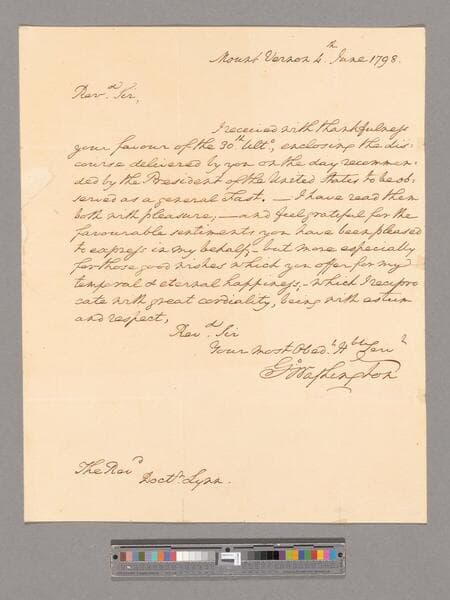 Mount Vernon 4th June 1798.
Revd Sir,
I received with thankfulness
your favour of the 30th Ulto, enclosing the dis-
course delivered by you on the day recommen-
ded by the President of the United States to be ob-
served as a general Fast. — I have read them
both with pleasure; — and feel grateful for the
favourable sentiments you have been pleased
to express in my behalf; — but more especially
for those good wishes which you offer for my
temporal & eternal happiness, — which I recipro
cate with great cordiality, being with esteem
and respect,
Revd Sir
Your most Obedt Hble Servt
Go Washington
The Revd
Doctr Lynn.